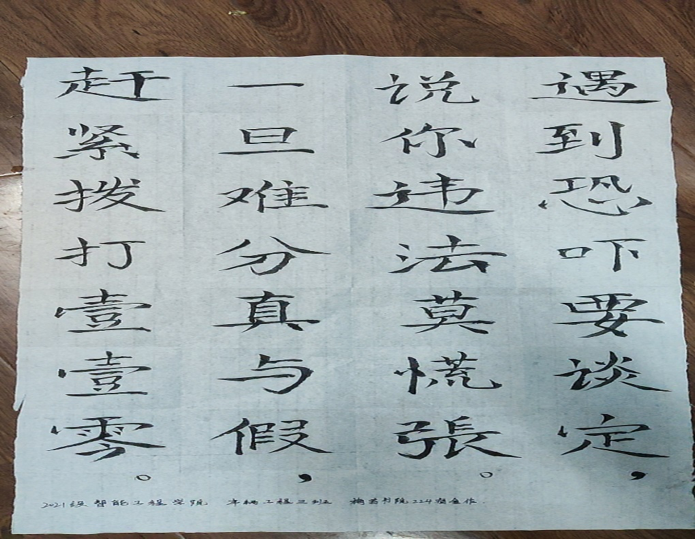 遇到恐吓要谈定，
说你违法莫慌張。
一旦难分真与假，
赶紧拨打壹壹零。
2021级 智能工程学院 车辆工程三班 书院224宿舍作